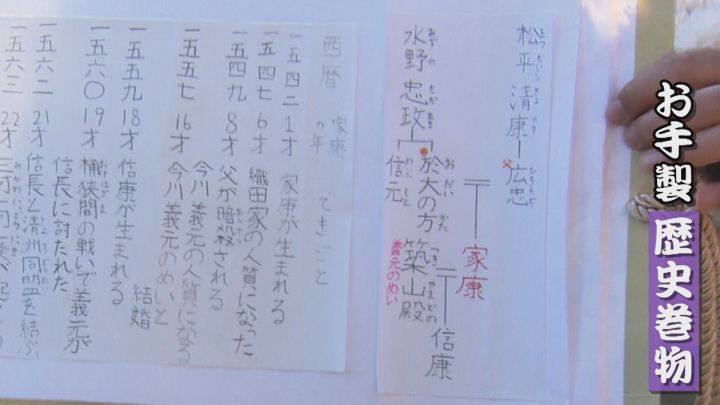 お手製
歴史巻物
松平清康ー広忠
父
家康
水野忠政
於大の方
信元
築山殿
義元のめい
信康
西暦 家康の年 できごと
一五四二 1才 家康が生まれる
一五四七 6才 織田家の人質になった
一五四九 8才 父が暗殺される
今川義元の人質になる
一五五七 16才 今川義元のめいと
結婚
一五五九 18才 信康が生まれる
一五六〇 19才 桶狭間の戦いで義元が
信長に討たれた
一五六二 21才 信長と清州同盟を結ぶ
一五六三 22才